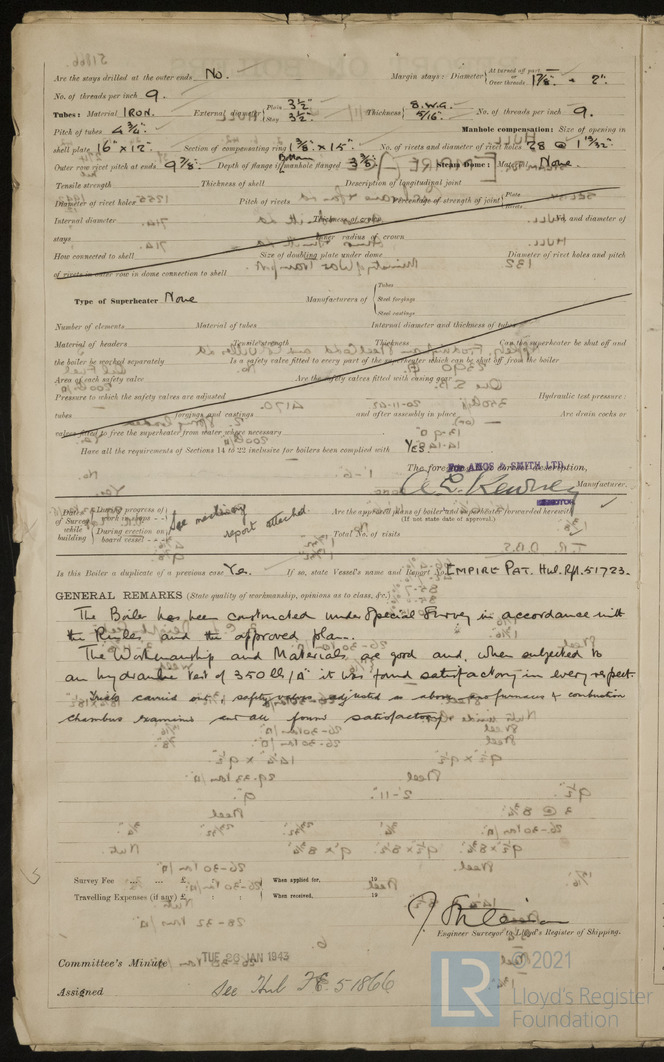 Are the stays drilled at the outer ends No. Margin stays: Diameter { At turned off part, Over threads 1 7/8" + 2"
No. of threads per inch 9.
Tubes: Material IRON. External diameter { Plain 3 1/2" Stay 3 1/2" Thickness { B.W.G. 5/16" No. of threads per inch 9.
Pitch of tubes 4 3/4" Manhole compensation: Size of opening in
shell plate 16" x 12" Section of compensating ring No. of rivets and diameter of rivet holes 28 @ 1 13/32"
Outer row rivet pitch at ends 9 7/8" Depth of flange if manhole flanged Bottom 3 3/8" Steam Dome: Material None.
Tensile strength Thickness of shell Description of longitudinal joint
Diameter of rivet holes Pitch of rivets Percentage of strength of joint { Plate Rivets
Internal diameter Thickness of crown No. and diameter of
stays Inner radius of crown
How connected to shell Size of doubling plate under dome Diameter of rivet holes and pitch
of rivets in outer row in dome connection to shell
Type of Superheater None Manufacturers of { Tubes Steel forgings Steel castings
Number of elements Material of tubes Internal diameter and thickness of tubes
Material of headers Tensile strength Thickness Can the superheater be shut off and
the boiler be worked separately Is a safety valve fitted to every part of the superheater which can be shut off from the boiler
Area of each safety valve Are the safety valves fitted with easing gear
Pressure to which the safety valves are adjusted Hydraulic test pressure:
tubes forgings and castings and after assembly in place Are drain cocks or
valves fitted to free the superheater from water where necessary
Have all the requirements of Sections 14 to 22 inclusive for boilers been complied with YES.
The foregoing is a correct description,
For AMOS & SMITH LTD.
Manufacturer.
Dates of Survey while building { During progress of work in shops - - During erection on board vessel - - - See machinery report attached Are the approved plans of boiler and superheater forwarded herewith (If not state date of approval.)
Total No. of visits
Is this Boiler a duplicate of a previous case Yes. If so, state Vessel's name and Report No. EMPIRE PAT. Hul. Rpt. 51723.
GENERAL REMARKS (State quality of workmanship, opinions as to class, &c.)
The Boiler has been constructed under Special Survey in accordance with
the Rules and the approved plan.
The Workmanship and Materials are good and, when subjected to
an hydraulic test of 350 lb/□" it was found satisfactory in every respect.
Trials carried out & safety valves adjusted as above, furnaces & combustion
chambers examined and all found satisfactory.
Survey Fee ... ... £ : : When applied for, 19
Travelling Expenses (if any) £ : : When received, 19
Engineer Surveyor to Lloyd's Register of Shipping.
Committee's Minute TUE 26 JAN 1943
Assigned See Hul FE. 51866
LR © 2021
Lloyd's Register
Foundation